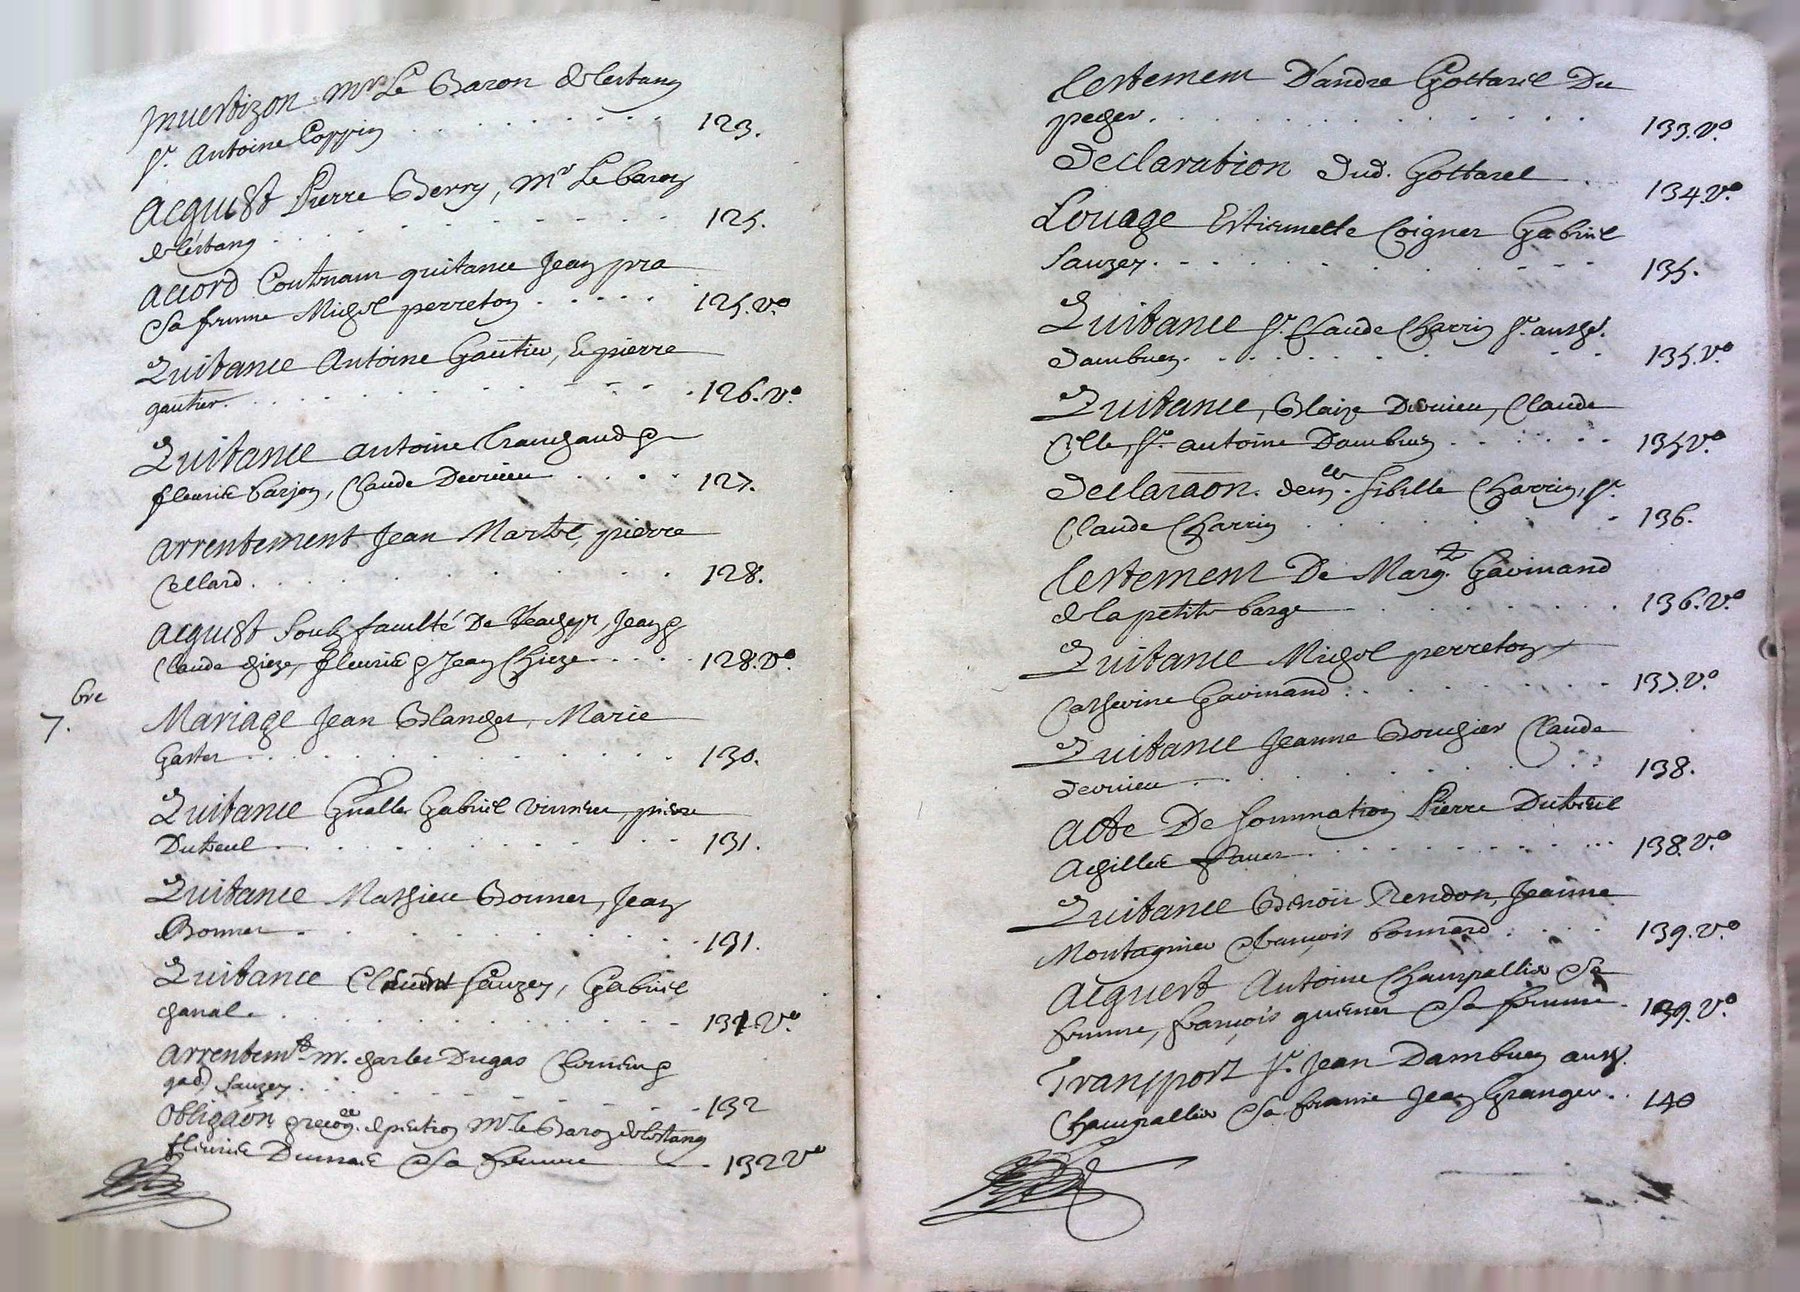 Investizon Mr Le Baron de lestang
Sr. Antoine Coppin 123.
Acquist Pierre Berry, Mr Le baron
de lestang 125.
Accord Contenant quitance Jean pra
Sa femme Michel perreton 125.vo.
Quitance Antoine Gautier, & pierre
gautier. 126.vo.
Quitance antoine
fleurie barjon, Claude Devrieu 127.
Arrentement Jean Martel, pierre
Cellard. 128.
Acquist soubz faculté De Jean &
Claude Fleurie & Jean Chieze 128.vo.
7.bre
Mariage Jean Blancher, Marie
130.
Quitance Gabriel pierre
Duteul 131.
Quitance Mathieu Bonner, Jean
Bonner 131.
Quitance Clement Sauzey, Gabriel
chanal 131.vo.
Arrentemt. mr. charles Dugas
Sauzey. 132
Obligaon Mr le Baron de lestang
fleurie & Sa femme 132 vo
testement D'andre Gottarel Du
peger. 133.vo.
Declaration dud. Gottarel 134.vo
Louage Estiennette Coignet Gabriel
Sauzey. 135.
Quitance Sr. Claude Charrin Sr. anthe.
Dambuen. 135.vo
Quitance, Blaize Devrieu, Claude
Celle, Sr. antoine Dambuen 135 vo
Declaraon. dem.lle Sibille Charrin, Sr.
Claude Charrin 136.
testement De Marg.te Gavinand
de la petite barge 136.vo
Quitance Michel perreton
Catherine Gavinand 137.vo
Quitance Jeanne Bouchier Claude
devrieu 138.
Acte De sommation Pierre Duteul
Achilles 138.vo
Quitance Benoit Rendon, Jeanne
Montagnier & francois bonnard 139.vo
Acquest Antoine Champallier Sa
femme, francois & Sa femme 139.vo
Transport Sr. Jean Dambuen anth.
Champallier & Sa femme Jean Granger. 140